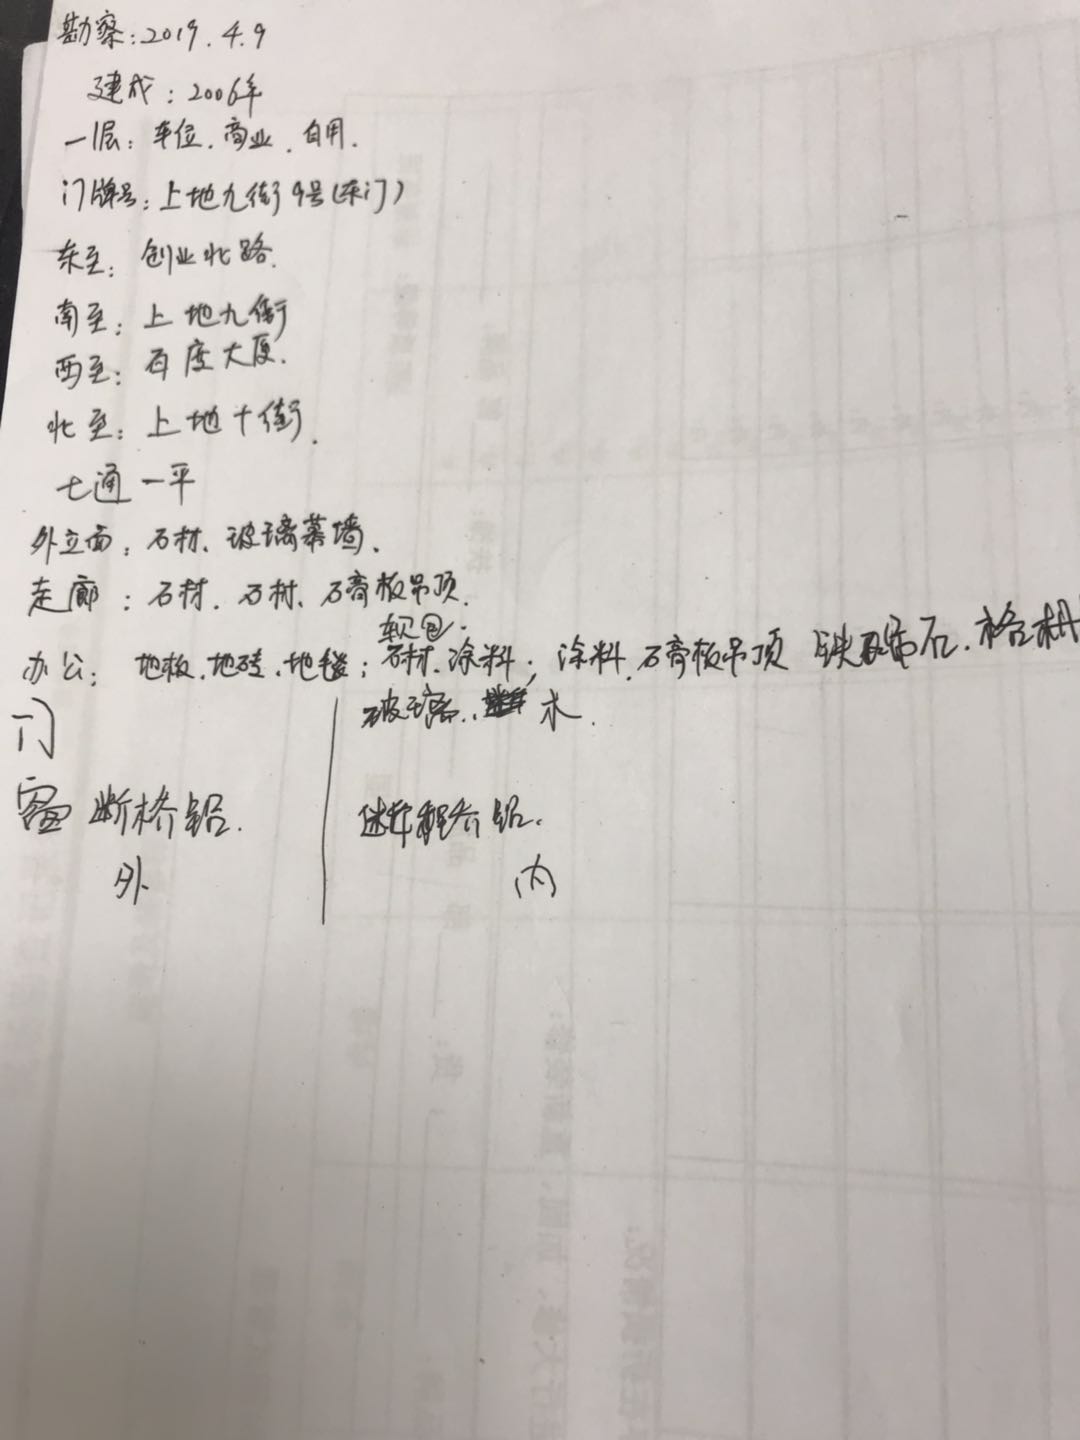 勘察:2019.4.9
建成:2006年
一层:车位.商业.自用.
门牌号:上地九街9号(东门)
东至:创业北路.
南至:上地九街
西至:百度大厦.
北至:上地十街.
七通一平
外立面:石材、玻璃幕墙、
走廊:石材.石材、石膏板吊顶.
软包.
办公:地板、地砖、地毯;石材、涂料;涂料.石膏板吊顶 石.格栅
门 玻璃、木.
窗 断桥铝. 铝.
外 内